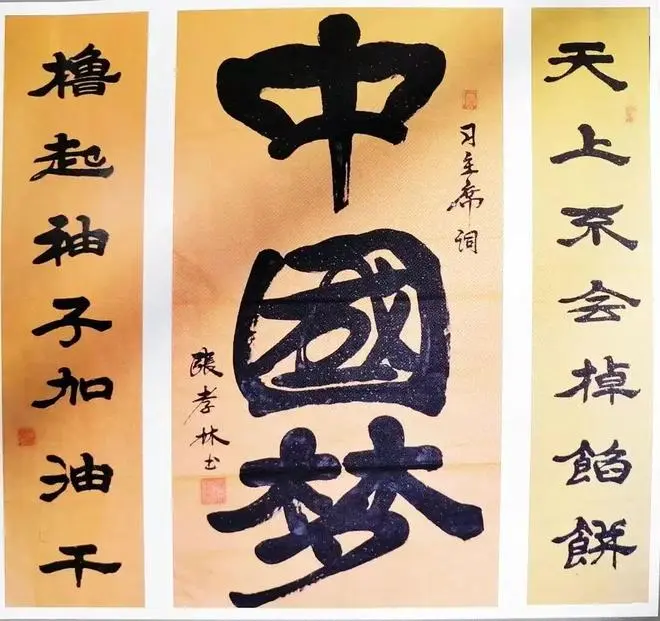 天上不会掉餡餅
中國梦
习主席词
張孝林书
橹起袖子加油干